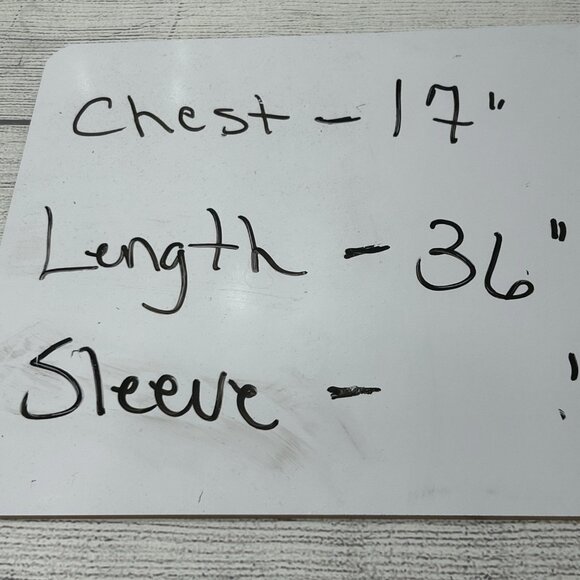 Chest - 17"
Length - 36"
Sleeve - "